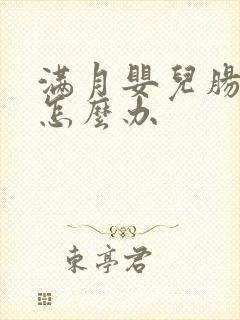 满月嬰兒腸
怎麼办
東亭君